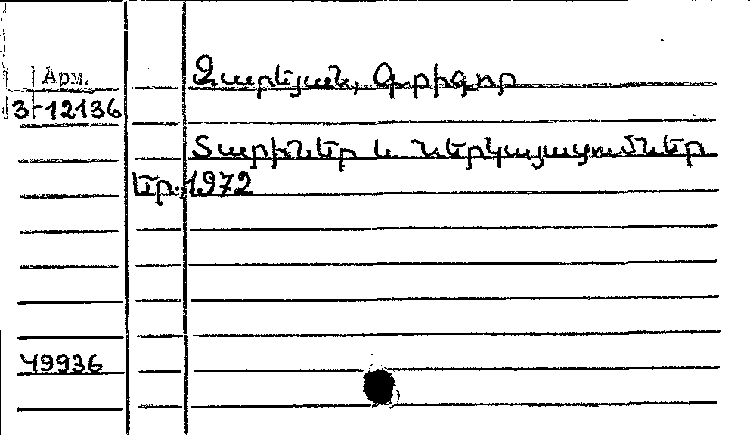 Арм.
Զարեյան, Գրիգոր
3-12136
Տարիներ և ներկայացումներ
Եր. 1972
49936